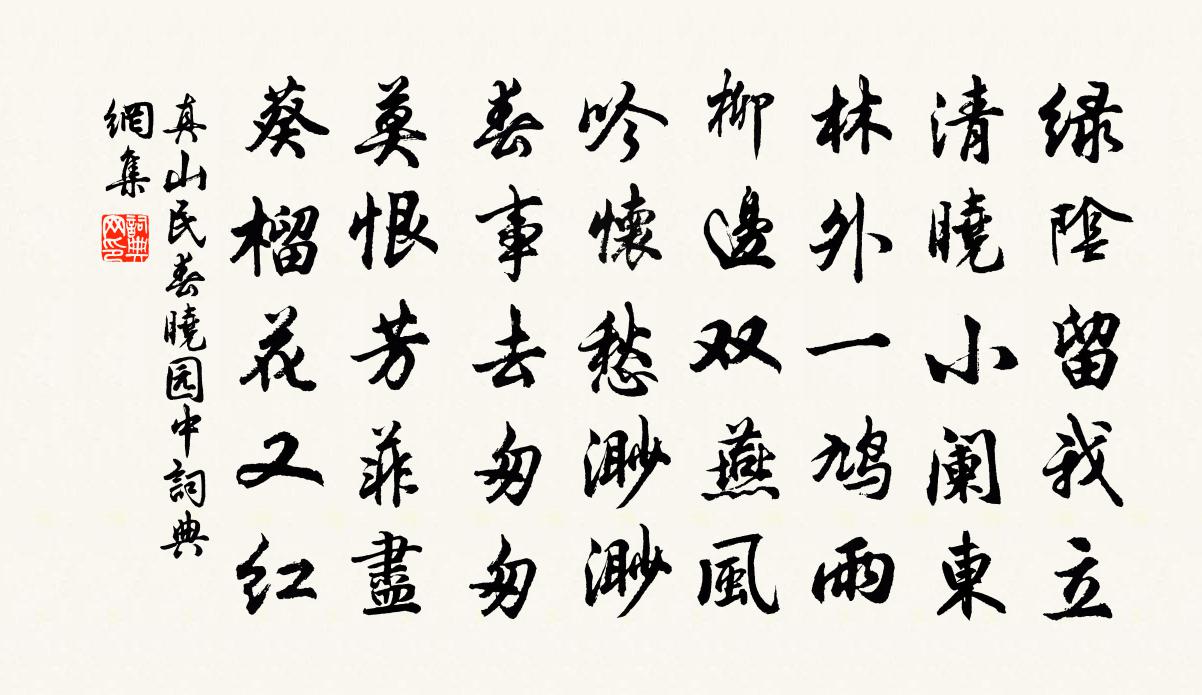 绿陰留我立
清曉小阑東
林外一鸠雨
柳邊双燕風
吟懷愁渺渺
春事去匆匆
莫恨芳菲盡
葵榴花又红
真山民春曉园中詞典
網集
詞典
网印